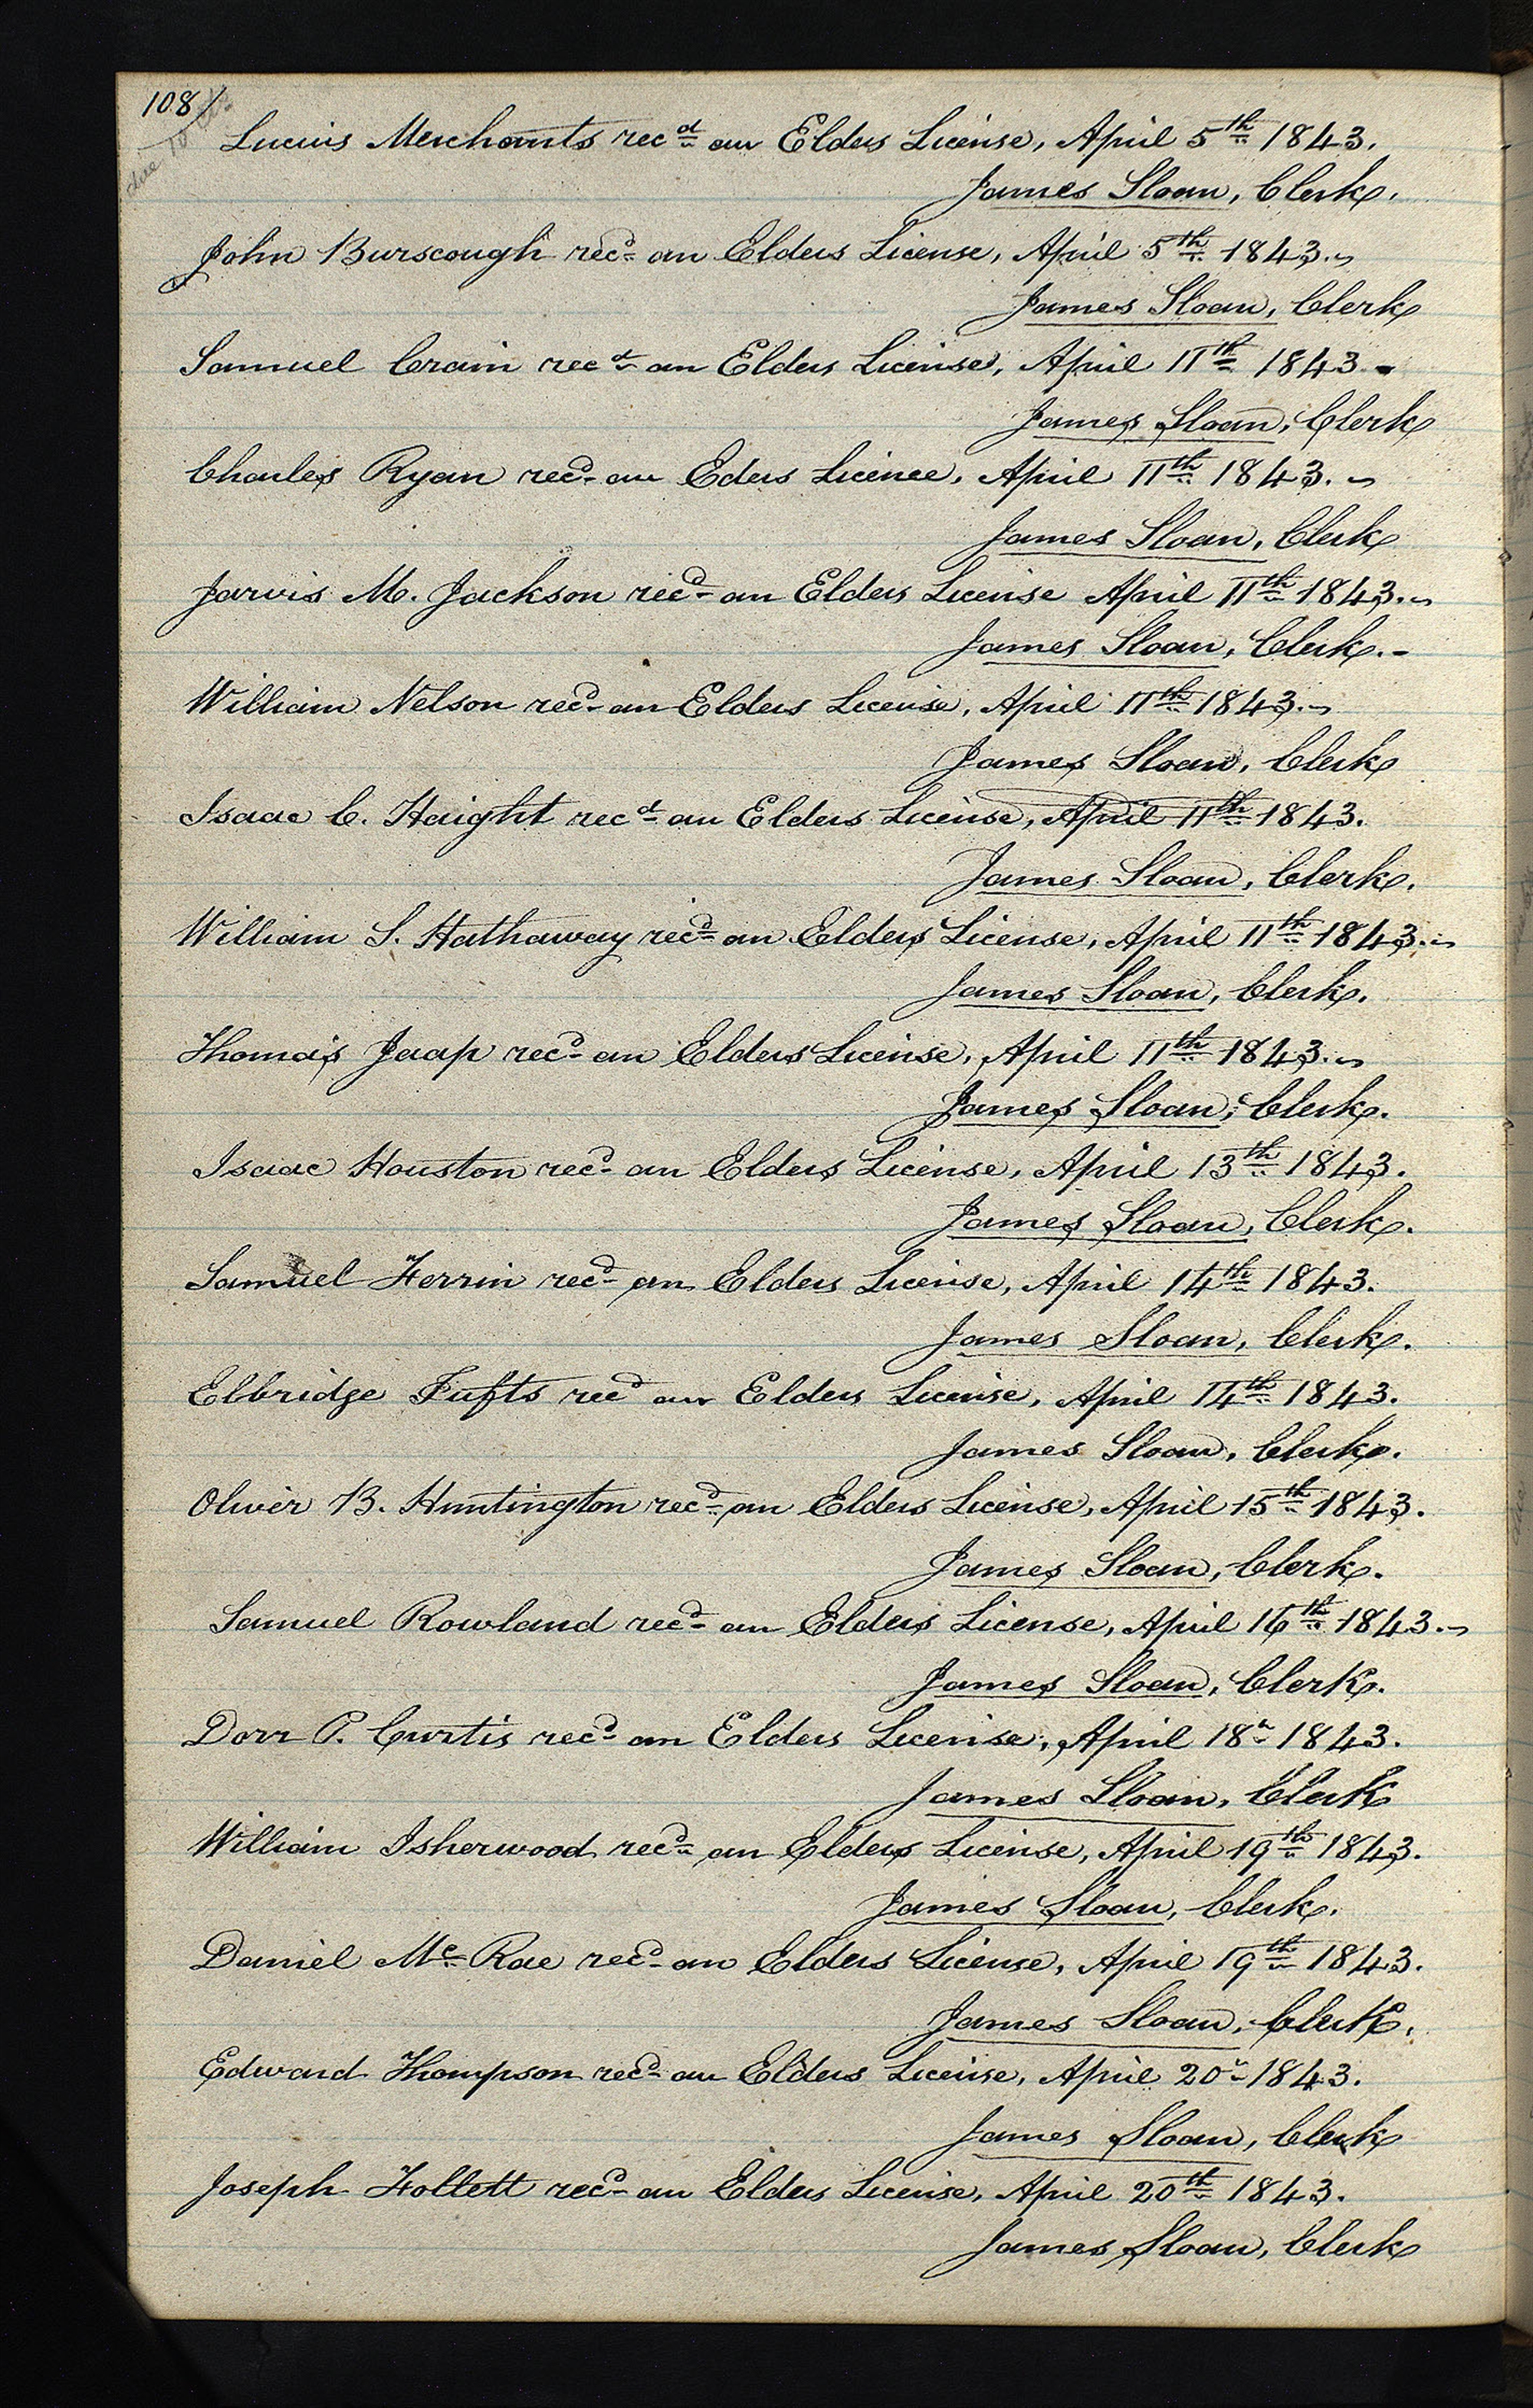 108/
Lucius Merchants recd an Elders License, April 5th 1843.
James Sloan, Clerk.
John Burscough recd an Elders License, April 5th 1843.
James Sloan, Clerk
Samuel Crain recd an Elders License, April 11th 1843
James Sloan, Clerk
Charles Ryan recd an Eders Licence, April 11th 1843.
James Sloan, Clerk
Jarvis M. Jackson recd an Elders License April 11th 1843.
James Sloan, Clerk.
William Nelson recd an Elders License, April 11th 1843.
James Sloan, Clerk
Isaac C. Haight recd an Elders License, April 11th 1843.
James Sloan, Clerk.
William S. Hathaway recd an Elders License, April 11th 1843.
James Sloan, Clerk.
Thomas Jaap recd an Elders License, April 11th 1843.
James Sloan, Clerk.
Isaac Houston recd an Elders License, April 13th 1843.
James Sloan, Clerk.
Samuel Ferrin recd an Elders License, April 14th 1843.
James Sloan, Clerk.
Elbridge Tufts recd an Elders License, April 14th 1843.
James Sloan, Clerk.
Oliver B. Huntington recd an Elders License, April 15th 1843.
James Sloan, Clerk.
Samuel Rowland recd an Elders License, April 16th 1843.
James Sloan, Clerk.
Dorr P. Curtis recd an Elders License, April 18th 1843.
James Sloan, Clerk
William Isherwood recd an Elders License, April 19th 1843.
James Sloan, Clerk.
Daniel Mc Rae recd an Elders License, April 19th 1843.
James Sloan, Clerk.
Edward Thompson recd an Elders License, April 20th 1843.
James Sloan, Clerk
Joseph Follett recd an Elders License, April 20th 1843.
James Sloan, Clerk